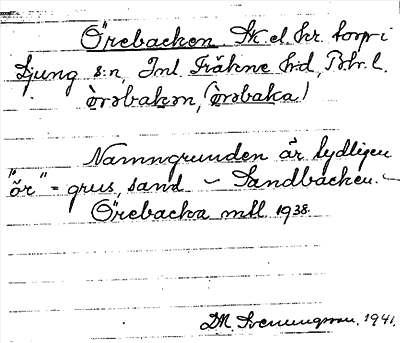 Örebacken Sk. el. kr. torp i
Ljung s:n, Inl. Fräkne h:d, Boh. l.
òrəbakən, (òrəbaka)
Namngrunden är tydligen
"ör" = grus, sand – Sandbacken. –
Örebacka mtl 1938.
D.M. Svenungsson, 1941.